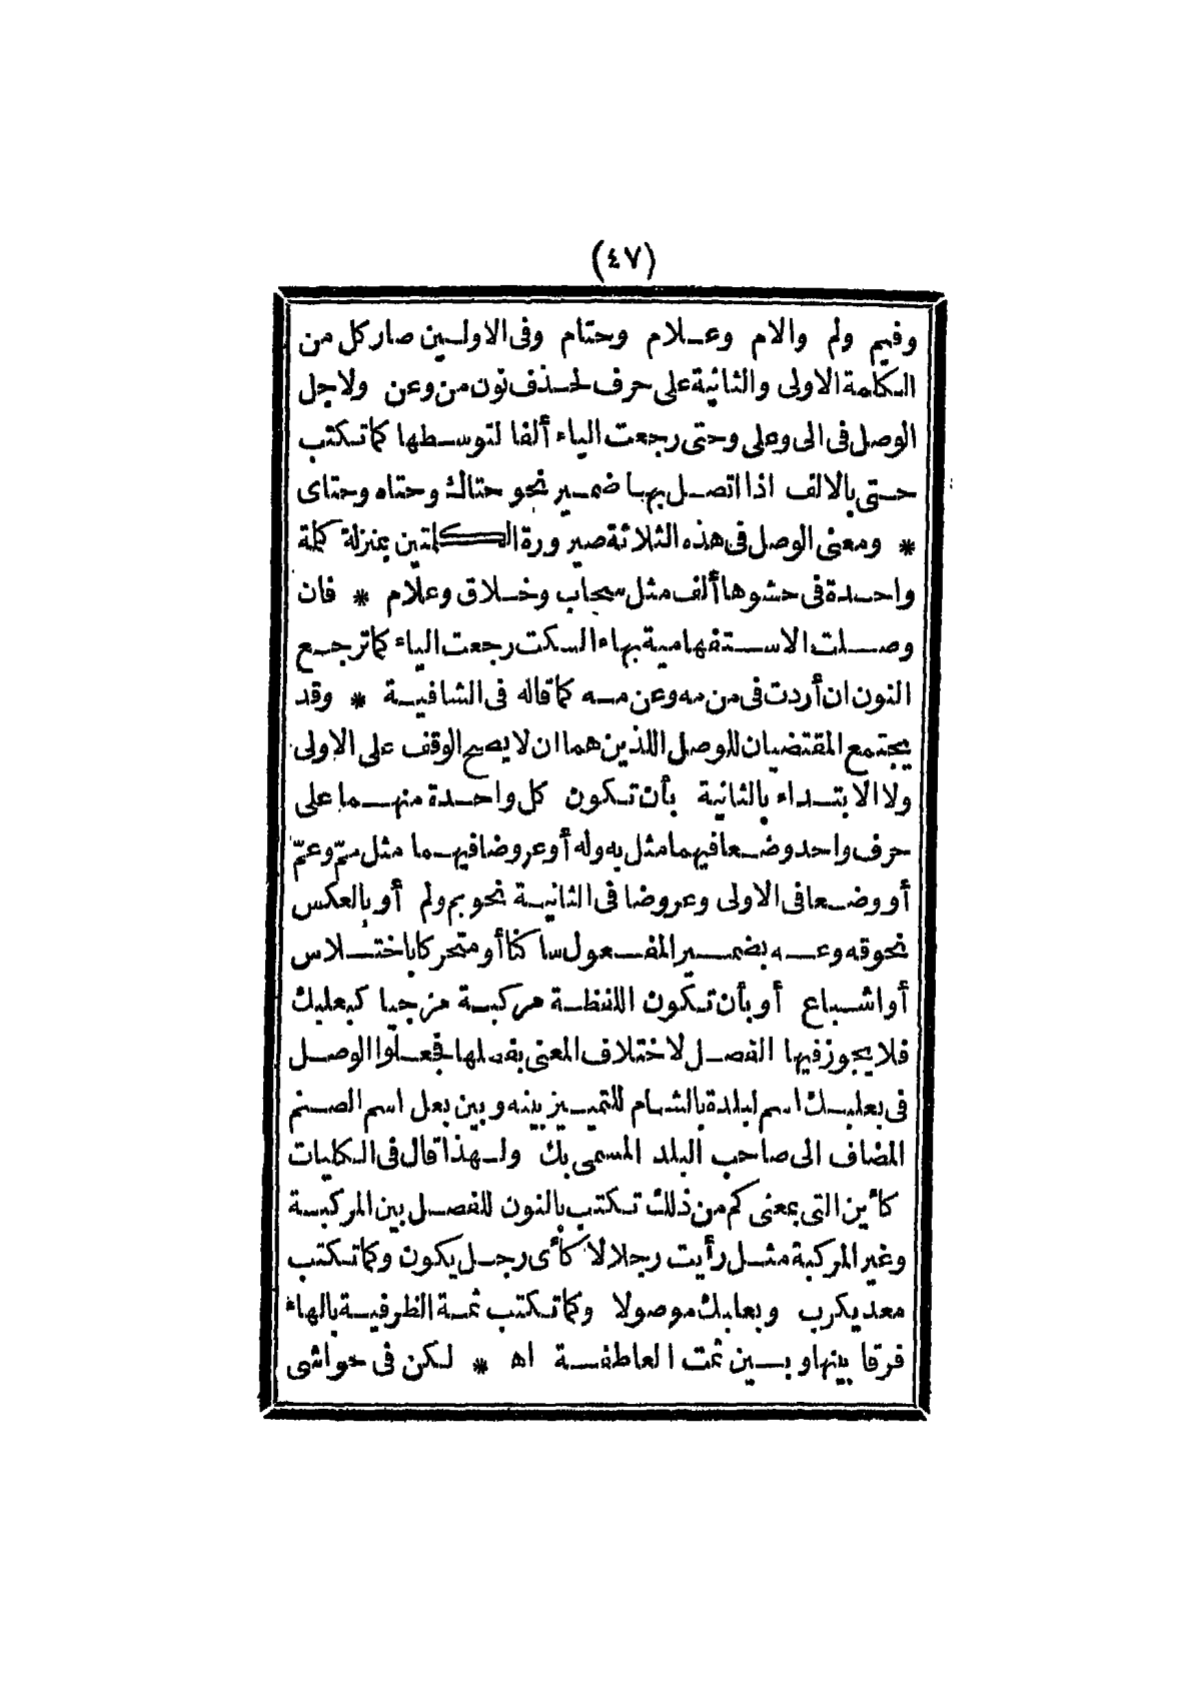 (٤٧)
وفيم ولم والام وعلام وحتام وفى الاولين صار كل من
الكلمة الاولى والثانية على حرف لحذف نون من وعن ولاجل
الوصل فى الى وعلى وحتى رجعت الياء ألفا لتوسطها كما تكتب
حتى بالالف اذا اتصل بها ضمير نحو حتاك وحتاه وحتاى
* ومعنى الوصل فى هذه الثلاثة صيرورة الكلمتين بمنزلة كلمة
واحدة فى حشوها ألف مثل سحاب وخلاق وعلام * فان
وصلت الاستفهامية بهاء السكت رجعت الياء كما ترجع
النون ان أردت فى من مه وعن مه كما قاله فى الشافية * وقد
يجتمع المقتضيان للوصل اللذين هما ان لا يصح الوقف على الاولى
ولا الابتداء بالثانية بأن تكون كل واحدة منهما على
حرف واحد وضعا فيهما مثل به وله أو عروضا فيهما مثل ممّ وعمّ
أو وضعا فى الاولى وعروضا فى الثانية نحو بم ولم أو بالعكس
نحو قه وعه بضمير المفعول ساكنا أو متحركا باختلاس
أو اشباع أو بأن تكون اللفظة مركبة مزجيا كبعلبك
فلا يجوز فيها الفصل لاختلاف المعنى بفصلها فجعلوا الوصل
فى بعلبك اسم لبلدة بالشام للتمييز بينه وبين بعل اسم الصنم
المضاف الى صاحب البلد المسمى بك ولهذا قال فى الكليات
كأين التى بمعنى كم من ذلك تكتب بالنون للفصل بين المركبة
وغير المركبة مثل رأيت رجلا لا كأى رجل يكون وكما تكتب
معديكرب وبعلبك موصولا وكما تكتب ثمة الظرفية بالهاء
فرقا بينها وبين ثمت العاطفة اه * لكن فى حواشى